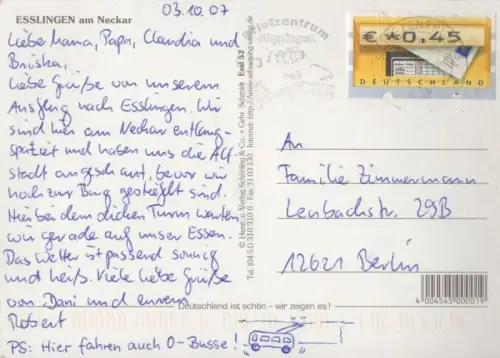 ESSLINGEN am Neckar
03.10.07
Liebe Mama, Papa, Claudia und
Briska,
liebe Grüße von unserem
Ausflug nach Esslingen. Wir
sind hier am Neckar entlang-
spaziert und haben uns die Alt-
stadt angeschaut, bevor wir
hoch zur Burg gestiefelt sind.
Hier bei dem dicken Turm warten
wir gerade auf unser Essen.
Das Wetter ist passend sonnig
und heiß. Viele liebe Grüße
von Dani und eurem
Robert
PS: Hier fahren auch O-Busse!
© Herst. u. Verlag Schöning & Co. + Gebr. Schmidt Essl 52
Tel. (04 51) 3 10 33 10 Fax 31 03 130 Internet: http://www.schoening-verlag.de
Deutschland ist schön – wir zeigen es!
Briefzentrum
Göppingen
€ *0,45
DEUTSCHLAND
An
Familie Zimmermann
Lenbachstr. 29B
12621 Berlin
4 004545 000019